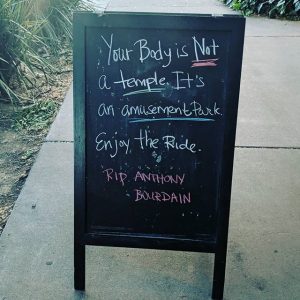 Your Body is Not
a temple. It's
an amusement Park.
Enjoy the Ride.
RIP ANTHONY
BOURDAIN